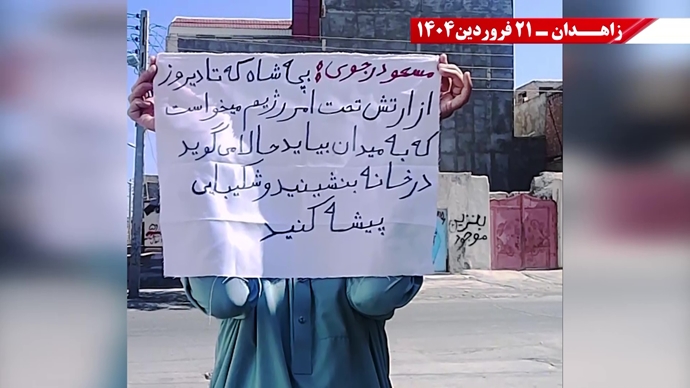 زاهدان ـ ۲۱ فروردین ۱۴۰۴
مسعود رجوی: بچه شاه که تا دیروز
از ارتش تحت امر رژیم میخواست
که به میدان بیاید حالا می گوید
در خانه بنشینید و شکیبایی
پیشه کنید
بنزین
موجود